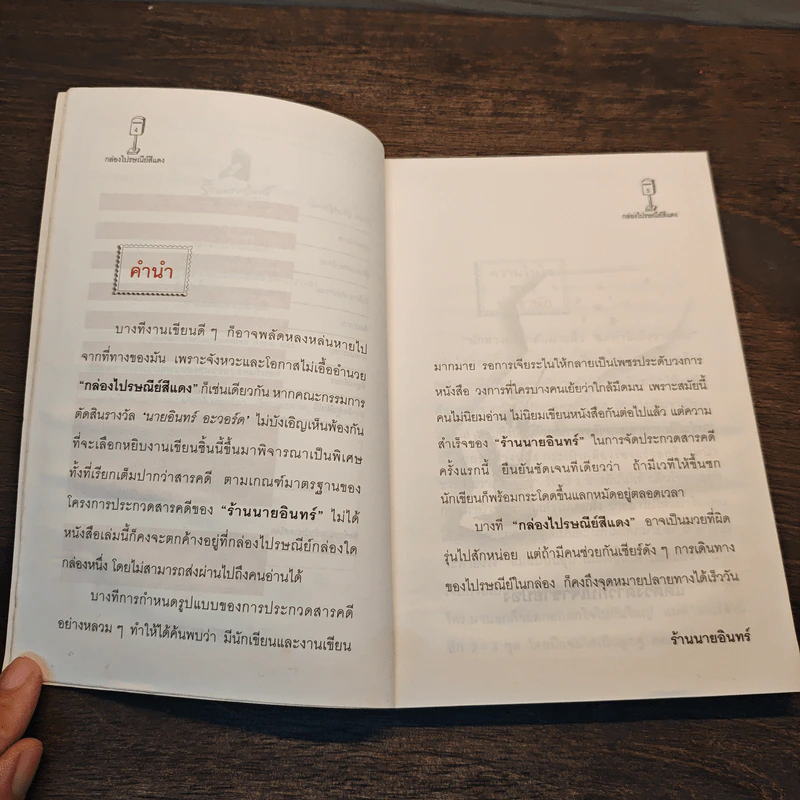 4
กล่องไปรษณีย์สีแดง
คำนำ
บางทีงานเขียนดี ๆ ก็อาจพลัดหลงหล่นหายไป
จากที่ทางของมัน เพราะจังหวะและโอกาสไม่เอื้ออำนวย
“กล่องไปรษณีย์สีแดง” ก็เช่นเดียวกัน หากคณะกรรมการ
ตัดสินรางวัล ‘นายอินทร์ อะวอร์ด’ ไม่บังเอิญเห็นพ้องกัน
ที่จะเลือกหยิบงานเขียนชิ้นนี้ขึ้นมาพิจารณาเป็นพิเศษ
ทั้งที่เรียกเต็มปากว่าสารคดี ตามเกณฑ์มาตรฐานของ
โครงการประกวดสารคดีของ “ร้านนายอินทร์” ไม่ได้
หนังสือเล่มนี้ก็คงจะตกค้างอยู่ที่กล่องไปรษณีย์กล่องใด
กล่องหนึ่ง โดยไม่สามารถส่งผ่านไปถึงคนอ่านได้
บางทีการกำหนดรูปแบบของการประกวดสารคดี
อย่างหลวม ๆ ทำให้ได้ค้นพบว่า มีนักเขียนและงานเขียน
5
กล่องไปรษณีย์สีแดง
มากมาย รอการเจียระไนให้กลายเป็นเพชรประดับวงการ
หนังสือ วงการที่ใครบางคนเย้ยว่าใกล้มืดมน เพราะสมัยนี้
คนไม่นิยมอ่าน ไม่นิยมเขียนหนังสือกันต่อไปแล้ว แต่ความ
สำเร็จของ “ร้านนายอินทร์” ในการจัดประกวดสารคดี
ครั้งแรกนี้ ยืนยันชัดเจนทีเดียวว่า ถ้ามีเวทีให้ขึ้นชก
นักเขียนก็พร้อมกระโดดขึ้นแลกหมัดอยู่ตลอดเวลา
บางที “กล่องไปรษณีย์สีแดง” อาจเป็นมวยที่ผิด
รุ่นไปสักหน่อย แต่ถ้ามีคนช่วยกันเชียร์ดัง ๆ การเดินทาง
ของไปรษณีย์ในกล่อง ก็คงถึงจุดหมายปลายทางได้เร็ววัน
ร้านนายอินทร์